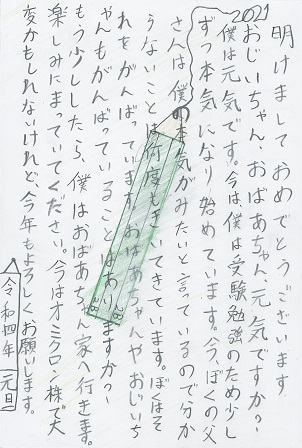 2021
明けましておめでとうございます
おじいちゃん、おばあちゃん元気ですか?
僕は元気です。今は僕は受験勉強のため少し
ずつ本気になり始めています。今、ぼくの父
さんは、僕の本気がみたいと言っているので分か
らないことは何度もきいてきています。ぼくはそ
れをがんばっています。おばあちゃんやおじいち
ゃんもがんばっていることはありますか?
もう少ししたら、僕はおばあちゃん家へ行きます。
楽しみにまっていてください。今はオミクロン株で大
変かもしれないけれど、今年もよろしくお願いします。
令和四年 元旦